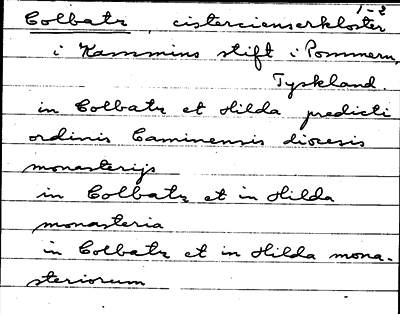 1-2
Colbatz, cistercienserkloster
i Kammins stift i Pommern,
Tyskland.
in Colbatz et Hilda predicti
ordinis Caminensis diocesis
monasterijs
in Colbatz et in Hilda
monasteria
in Colbatz et in Hilda mona-
steriorum